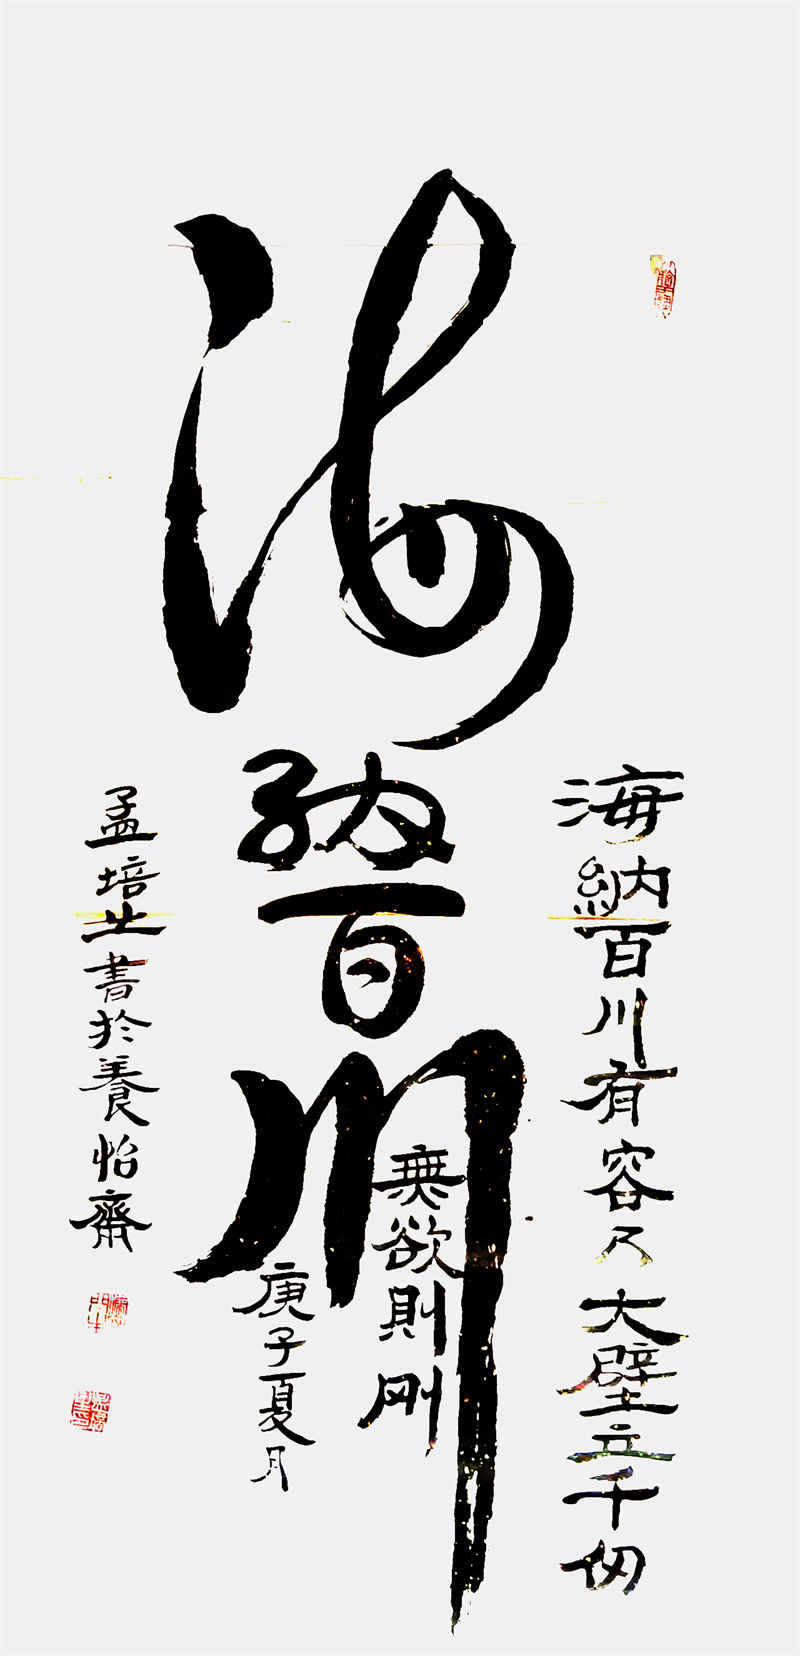 海納百川
海納百川有容乃大壁立千仞
無欲則剛
庚子夏月
孟培之書於養怡齋